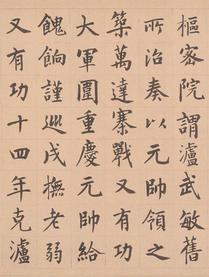 樞密院謂瀘武敏舊
所治奏以元帥領之
築萬達寨戰又有功
大軍圍重慶元帥給
餽餉謹巡戍撫老弱
又有功十四年克瀘